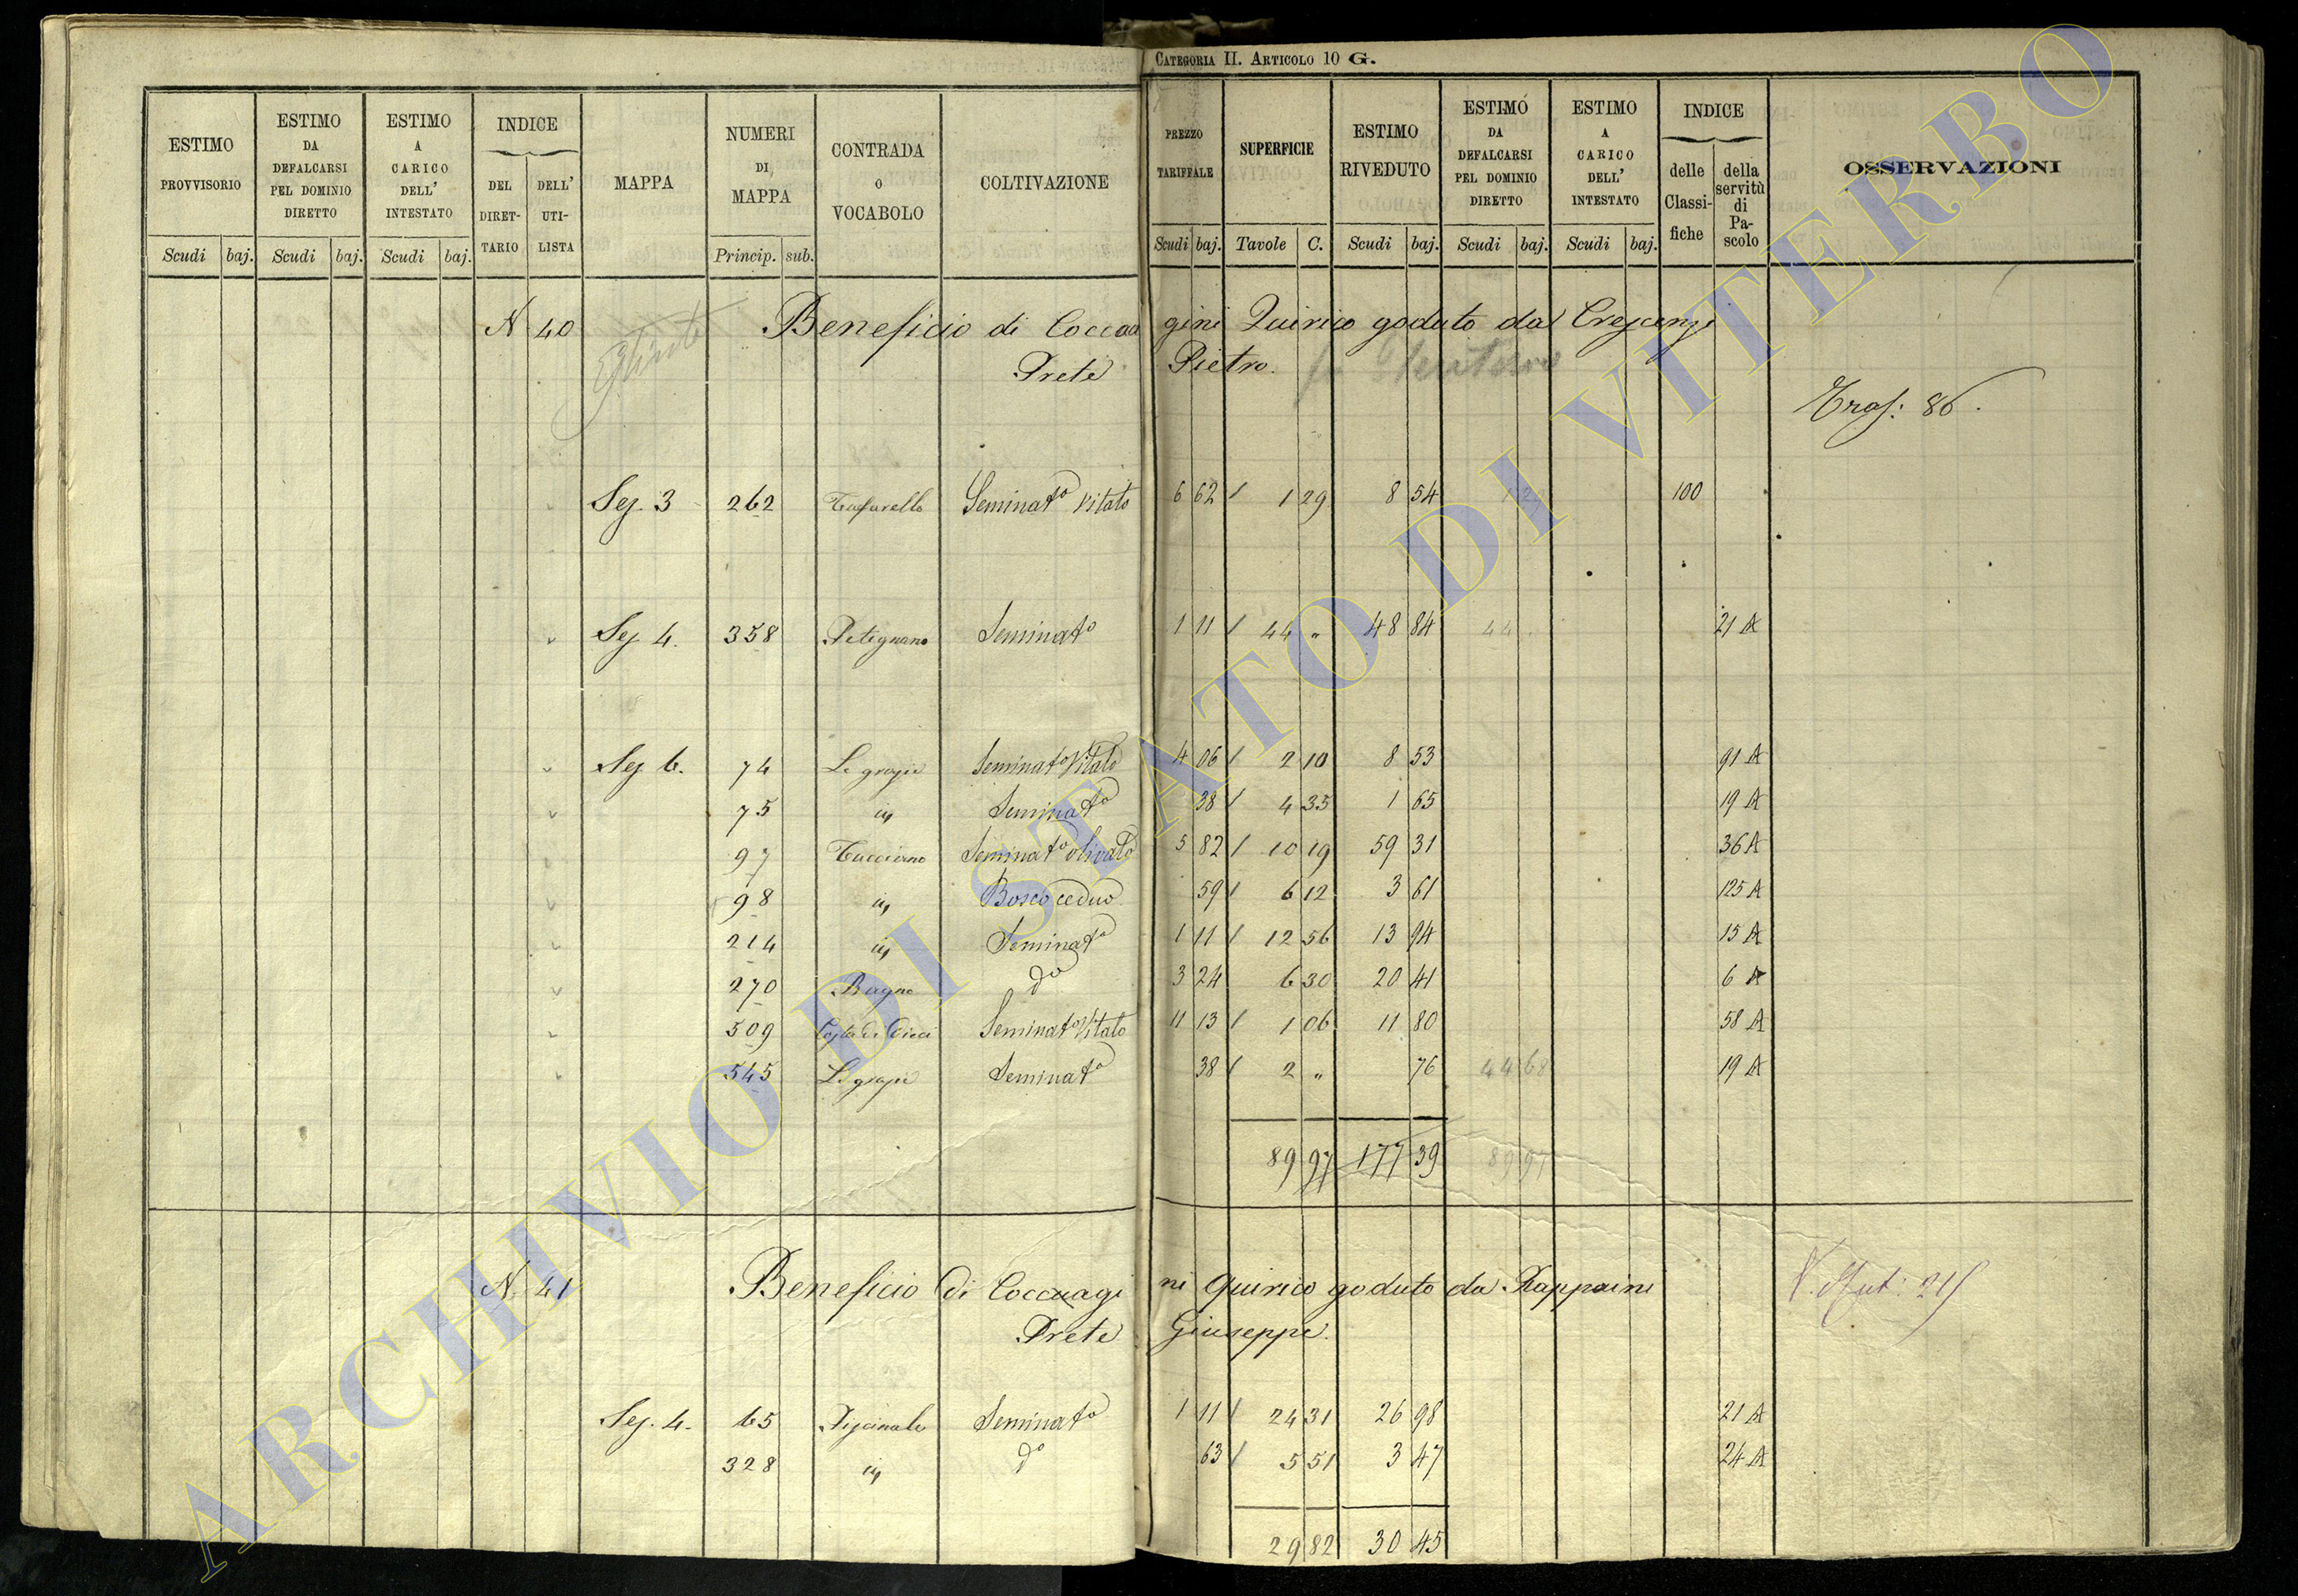 CATEGORIA II. ARTICOLO 10 G.
ESTIMO PROVVISORIO Scudi baj.
ESTIMO DA DEFALCARSI PEL DOMINIO DIRETTO Scudi baj.
ESTIMO A CARICO DELL' INTESTATO Scudi baj.
INDICE DEL DIRET-TARIO DELL' UTI-LISTA
MAPPA
NUMERI DI MAPPA Princip. sub.
CONTRADA O VOCABOLO
COLTIVAZIONE
PREZZO TARIFFALE Scudi baj.
SUPERFICIE Tavole C.
ESTIMO RIVEDUTO Scudi baj.
ESTIMO DA DEFALCARSI PEL DOMINIO DIRETTO Scudi baj.
ESTIMO A CARICO DELL' INTESTATO Scudi baj.
INDICE delle Classi-fiche della servitù di Pa-scolo
OSSERVAZIONI
N 40 Beneficio di Coccia gini Quirico goduto da Crescenzi
Prete Pietro.
Tras: 86.
Sez. 3 262 Seminato Vitato 6 62 1 29 8 54 100
Sez 4. 358 Petignano Seminato 1 11 44 " 48 84 44 21 A
Sez 6. 74 Le grazie Seminato Vitato 4 06 2 10 8 53 91 A
75 id Seminato 38 4 35 1 65 19 A
97 Cucciano Seminato olivato 5 82 10 19 59 31 36 A
98 id Bosco ceduo 59 6 12 3 61 125 A
214 id Seminato 1 11 12 56 13 94 15 A
270 Bagno do 3 24 6 30 20 41 6 A
509 Seminato Vitato 11 13 1 06 11 80 58 A
545 Le grazie Seminato 38 2 " 76 44 68 19 A
89 97 177 39 89 97
N. 41 Beneficio di Coccuagi ni Quirico goduto da Rappaini
Prete Giuseppe.
Sez. 4. 65 Piscinale Seminato 1 11 24 31 26 98 21 A
328 id do 63 5 51 3 47 24 A
29 82 30 45
ARCHIVIO DI STATO DI VITERBO